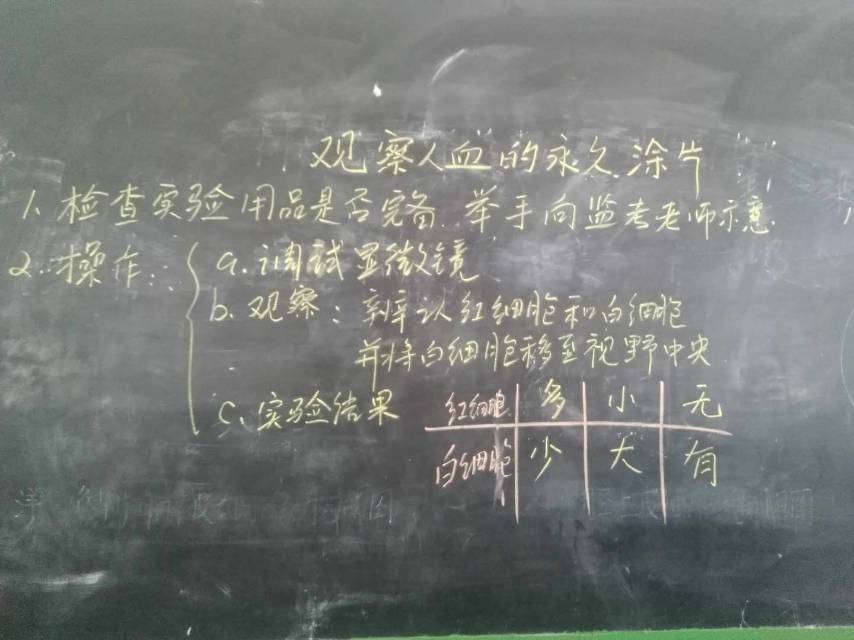 观察人血的永久涂片
1、检查实验用品是否完备.举手向监考老师示意.
2.操作:
a.调试显微镜
b.观察:辨认红细胞和白细胞
并将白细胞移至视野中央
c、实验结果
红细胞 多 小 无
白细胞 少 大 有